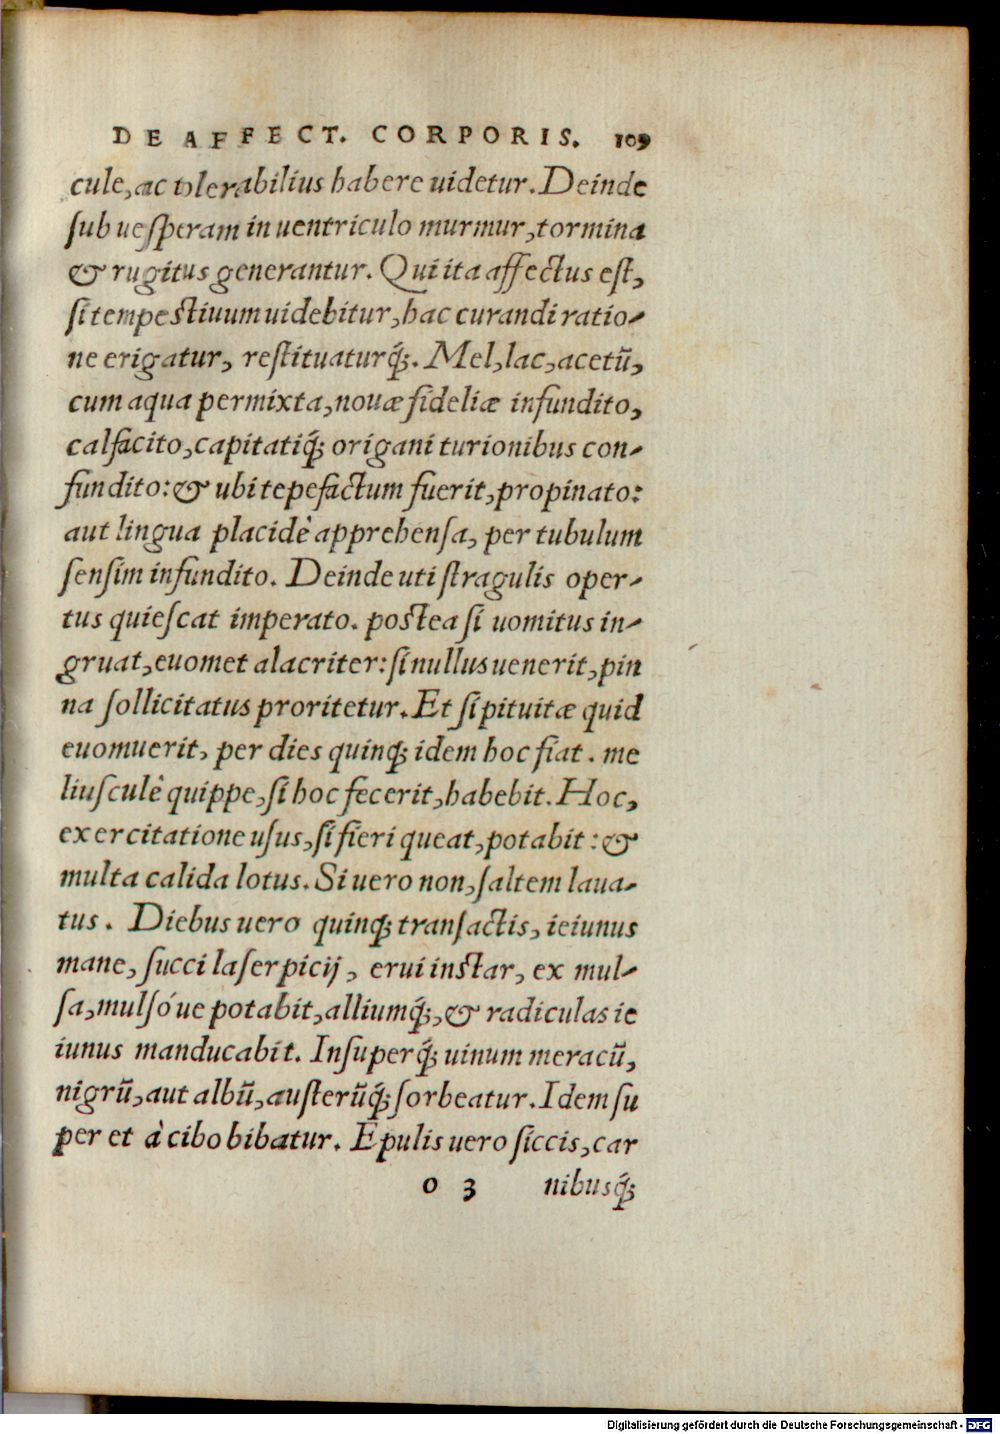 DE AFFECT. CORPORIS. 109
cule, ac tolerabilius habere uidetur. Deinde
sub uesperam in uentriculo murmur, tormina
& rugitus generantur. Qui ita affectus est,
si tempestiuum uidebitur, hac curandi ratio-
ne erigatur, restituaturq́;. Mel, lac, acetũ,
cum aqua permixta, nouæ fideliæ infundito,
calfacito, capitatiq́; origani turionibus con-
fundito: & ubi tepefactum fuerit, propinato:
aut lingua placidè apprehensa, per tubulum
sensim infundito. Deinde uti stragulis oper-
tus quiescat imperato. postea si uomitus in-
gruat, euomet alacriter: si nullus uenerit, pin
na sollicitatus proritetur. Et si pituitæ quid
euomuerit, per dies quinq; idem hoc fiat. me
liusculè quippe, si hoc fecerit, habebit. Hoc,
exercitatione usus, si fieri queat, potabit: &
multa calida lotus. Si uero non, saltem laua-
tus. Diebus uero quinq; transactis, ieiunus
mane, succi laserpicij, erui instar, ex mul-
sa, mulsóue potabit, alliumq́;, & radiculas ie
iunus manducabit. Insuperq́; uinum meracũ,
nigrũ, aut albũ, austerũq́; sorbeatur. Idem su
per et à cibo bibatur. Epulis uero siccis, car
o 3 nibusq́;
Digitalisierung gefördert durch die Deutsche Forschungsgemeinschaft - DFG